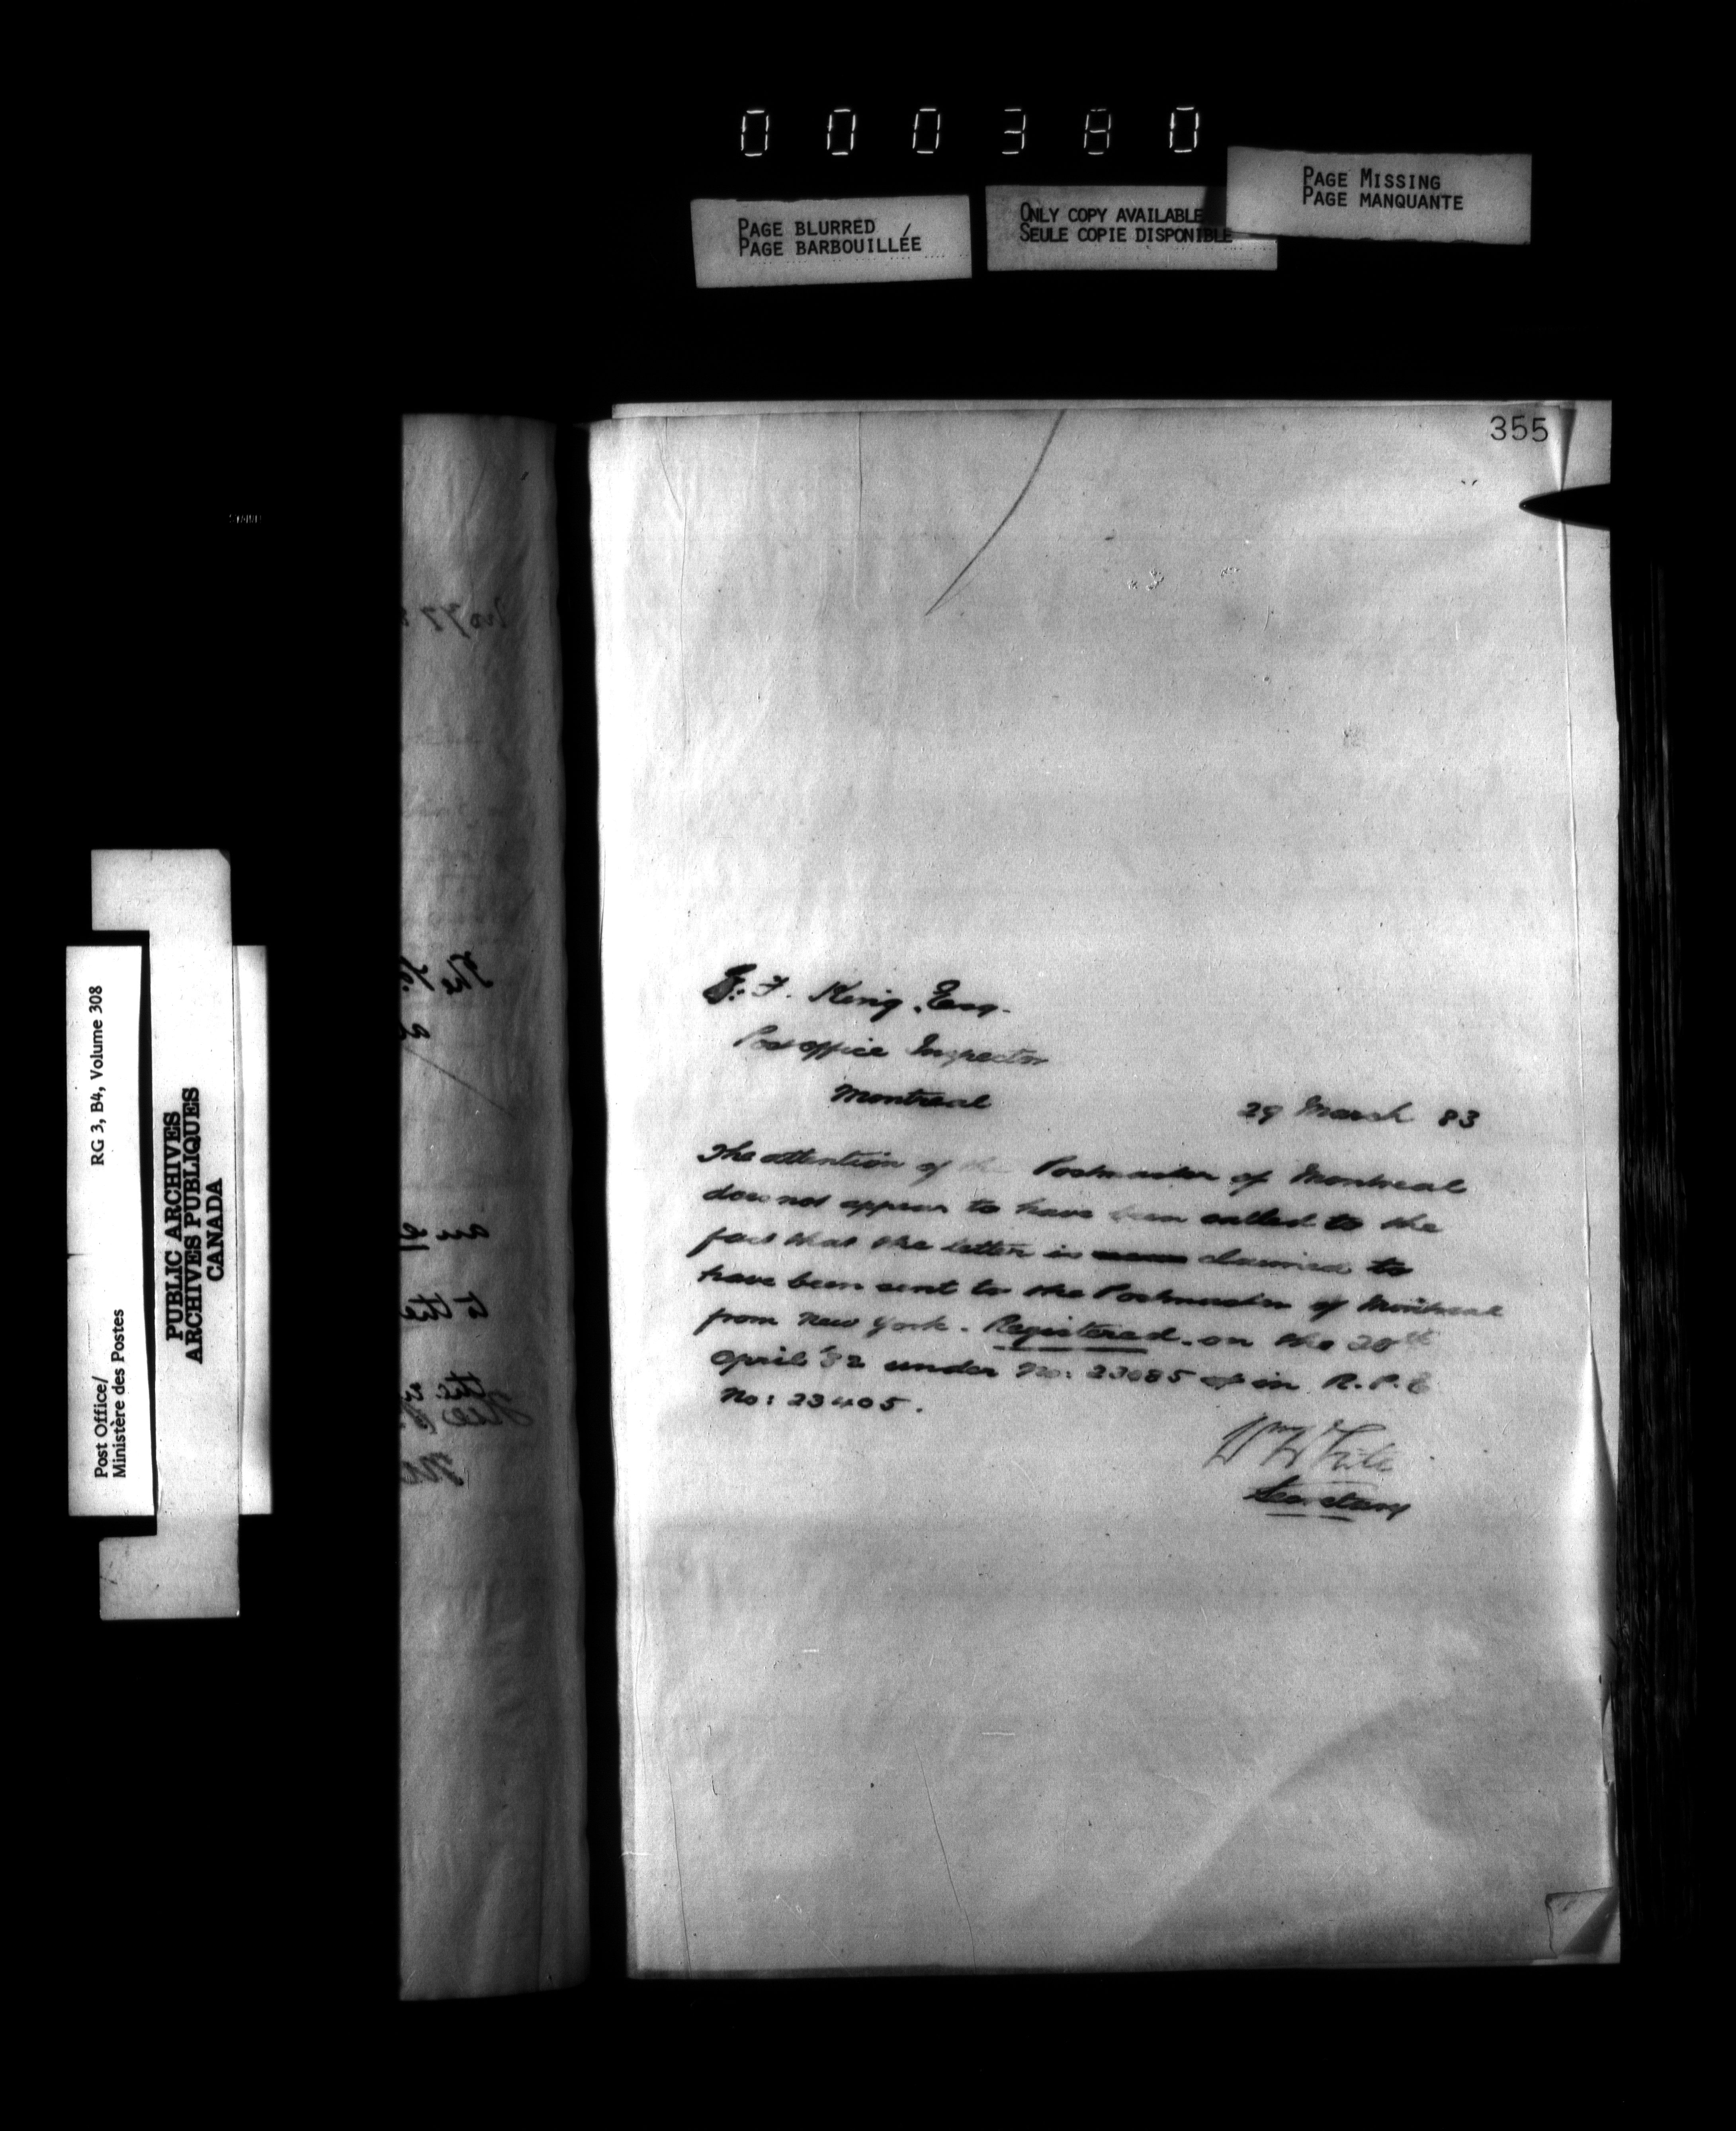 000380
PAGE BLURRED
PAGE BARBOUILLÉE
ONLY COPY AVAILABLE
SEULE COPIE DISPONIBLE
PAGE MISSING
PAGE MANQUANTE
Post Office/
Ministère des Postes
RG 3, B4, Volume 308
PUBLIC ARCHIVES
ARCHIVES PUBLIQUES
CANADA
355
F. King, Esq.
Post office Inspector
Montreal
29 March 83
The attention of the Postmaster of Montreal
does not appear to have been called to the
fact that the letter is claimed to
have been sent to the Postmaster of Montreal
from New York. Registered on the 20th
April 82 under No: 23685 in R.P.E
No: 23405.
Wm White
Secretary